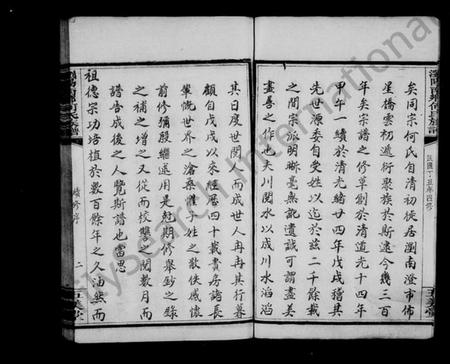 瀏陽南鄉何氏族譜
民國丁丑年四修
矣同宗何氏自清初徙居瀏南澄市佈
星僑雲礽遞衍聚族於斯迄今幾三百
年矣宗譜之修草創於清道光十四年
甲午一續於清光緒廿四年戊戌稽其
先世源委自受姓以迄於茲二千餘載
之間宗派明晰毫無訛遺誠可謂盡美
盡善之作也夫川閱水以成川水滔滔
其日度世閱人而成世人冉冉其行暮
顧自戊戌以來歷四十載貴房諸長
輩慨世界之滄桑懼子姓之散佚感懷
前修彌殷繼述用是剋期修舉鈔之錄
之補之增之又從而校讐之閱數月而
譜告成後之人覽斯譜也當思
祖德宗功培植於數百餘年之久油然而
續修序
二
FamilySearch International